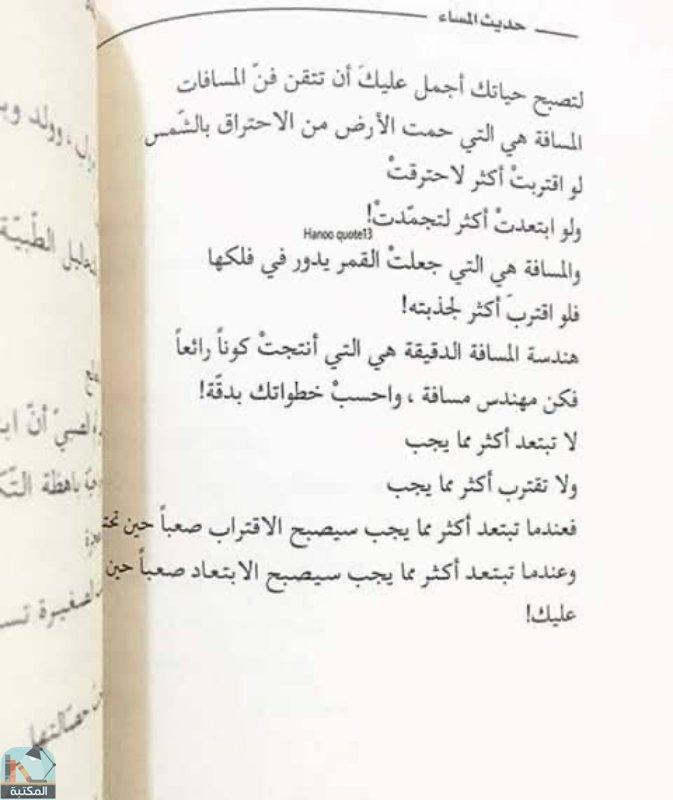 حديث المساء
لتصبح حياتك أجمل عليكَ أن تتقن فنّ المسافات
المسافة هي التي حمت الأرض من الاحتراق بالشّمس
لو اقتربتْ أكثر لاحترقتْ
ولو ابتعدتْ أكثر لتجمّدتْ!
Hanoo quote13
والمسافة هي التي جعلتْ القمر يدور في فلكها
فلو اقتربَ أكثر لجذبته!
هندسة المسافة الدقيقة هي التي أنتجتْ كوناً رائعاً
فكن مهندس مسافة ، واحسبْ خطواتك بدقّة!
لا تبتعد أكثر مما يجب
ولا تقترب أكثر مما يجب
فعندما تبتعد أكثر مما يجب سيصبح الاقتراب صعباً حين
وعندما تبتعد أكثر مما يجب سيصبح الابتعاد صعباً حين
عليك!
، وولد
الطّبيّة
أنّ
باهظة
لصغيرة
حصّالتها
المكتبة